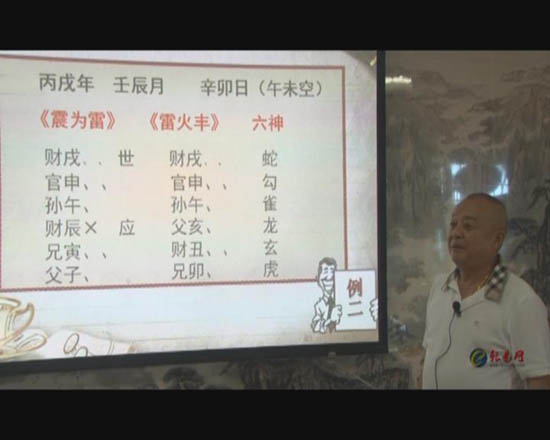 丙戌年 壬辰月 辛卯日（午未空）
《震为雷》 《雷火丰》 六神
财戌、、 世 财戌、、 蛇
官申、、 官申、、 勾
孙午、 孙午、 雀
财辰× 应 父亥、 龙
兄寅、、 财丑、、 玄
父子、 兄卯、 虎
例二